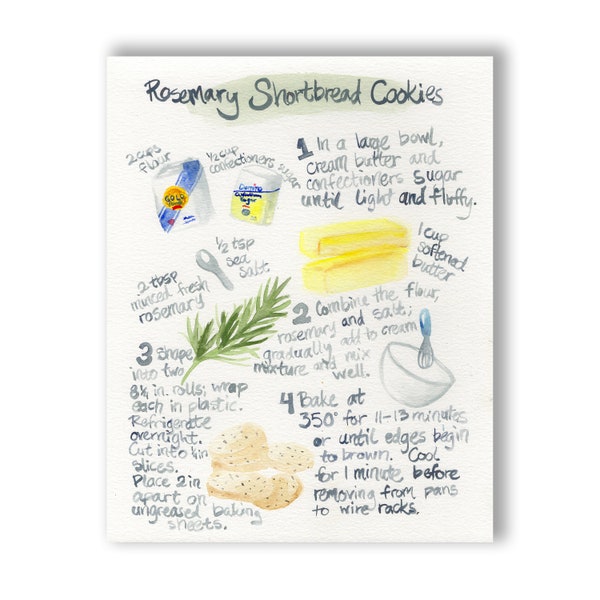 Rosemary Shortbread Cookies
2 cups
flour
GOLD
1/2 cup
confectioners sugar
Domino
1 In a large bowl,
cream butter and
confectioners sugar
until light and fluffy.
1/2 tsp
sea
salt
1 cup
softened
butter
2 tbsp
minced fresh
rosemary
2 Combine the flour,
rosemary and salt;
gradually add to cream
mixture and mix
well.
3 Shape
into two
8 1/4 in. rolls; wrap
each in plastic.
Refrigerate
overnight.
Cut into 1/4 in
slices.
Place 2 in
apart on
ungreased baking
sheets.
4 Bake at
350° for 11-13 minutes
or until edges begin
to brown. Cool
for 1 minute before
removing from pans
to wire racks.